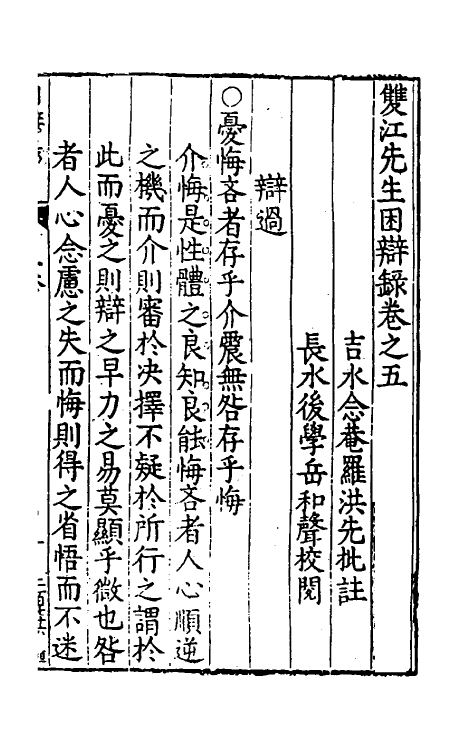 雙江先生困辯錄卷之五
吉水念菴羅洪先批註
長水後學岳和聲校閱
辯過
○憂悔吝者存乎介震無咎存乎悔
介悔是性體之良知良能悔吝者人心順逆
之機而介則審於决擇不疑於所行之謂於
此而憂之則辯之早力之易莫顯乎微也咎
者人心念慮之失而悔則得之省悟而不迷